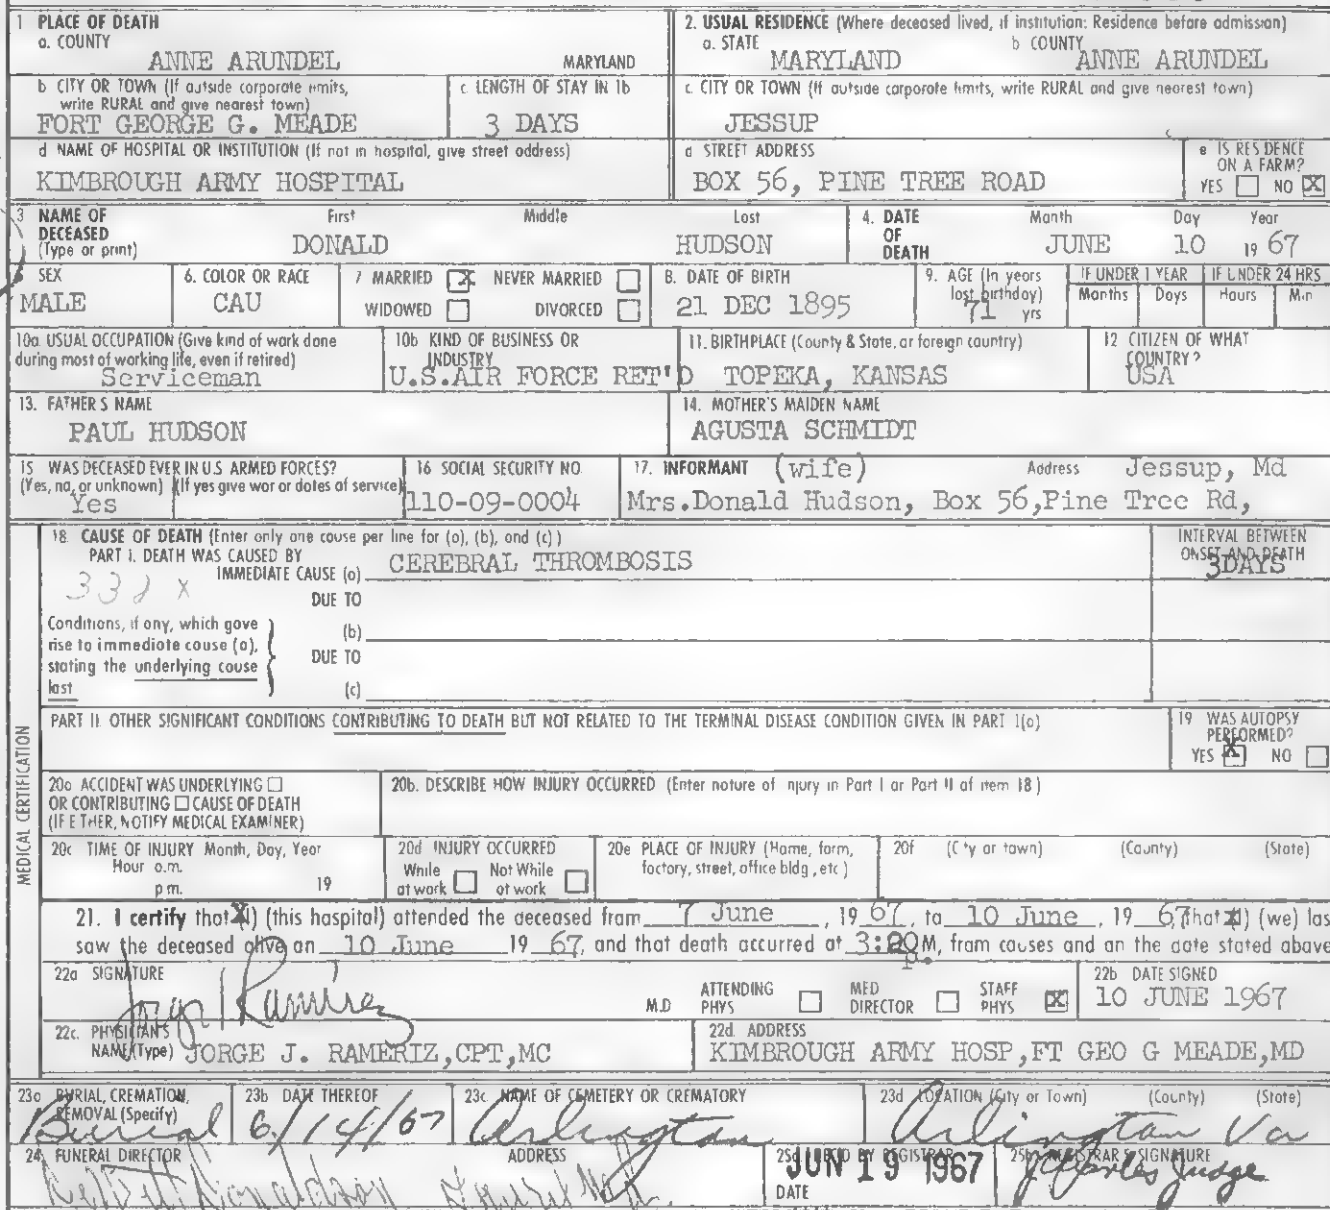 1 PLACE OF DEATH
a. COUNTY
ANNE ARUNDEL MARYLAND
2. USUAL RESIDENCE (Where deceased lived, if institution: Residence before admission)
a. STATE b COUNTY
MARYLAND ANNE ARUNDEL
b CITY OR TOWN (If outside corporate limits,
write RURAL and give nearest town)
FORT GEORGE G. MEADE
c. LENGTH OF STAY IN 1b
3 DAYS
c. CITY OR TOWN (If outside corporate limits, write RURAL and give nearest town)
JESSUP
d NAME OF HOSPITAL OR INSTITUTION (If not in hospital, give street address)
KIMBROUGH ARMY HOSPITAL
d STREET ADDRESS
BOX 56, PINE TREE ROAD
e IS RESIDENCE
ON A FARM?
YES NO X
3 NAME OF
DECEASED
(Type or print)
First Middle Last
DONALD HUDSON
4. DATE
OF
DEATH
Month Day Year
JUNE 10 19 67
SEX
MALE
6. COLOR OR RACE
CAU
7 MARRIED X NEVER MARRIED
WIDOWED DIVORCED
8. DATE OF BIRTH
21 DEC 1895
9. AGE (In years
last birthday)
71 yrs
IF UNDER 1 YEAR IF UNDER 24 HRS
Months Days Hours Min
10a USUAL OCCUPATION (Give kind of work done
during most of working life, even if retired)
Serviceman
10b KIND OF BUSINESS OR
INDUSTRY
U.S.AIR FORCE RET'D
11. BIRTHPLACE (County & State, or foreign country)
TOPEKA, KANSAS
12 CITIZEN OF WHAT
COUNTRY?
USA
13. FATHER S NAME
PAUL HUDSON
14. MOTHER'S MAIDEN NAME
AGUSTA SCHMIDT
15 WAS DECEASED EVER IN U.S ARMED FORCES?
(Yes, no, or unknown) (If yes give war or dates of service)
Yes
16 SOCIAL SECURITY NO.
110-09-0004
17. INFORMANT (wife) Address Jessup, Md
Mrs.Donald Hudson, Box 56,Pine Tree Rd,
MEDICAL CERTIFICATION
18 CAUSE OF DEATH (Enter only one cause per line for (a), (b), and (c) )
PART I. DEATH WAS CAUSED BY
IMMEDIATE CAUSE (a) CEREBRAL THROMBOSIS
INTERVAL BETWEEN
ONSET AND DEATH
3DAYS
DUE TO
Conditions, if any, which gave
rise to immediate cause (a),
stating the underlying cause
last
(b)
DUE TO
(c)
PART II. OTHER SIGNIFICANT CONDITIONS CONTRIBUTING TO DEATH BUT NOT RELATED TO THE TERMINAL DISEASE CONDITION GIVEN IN PART I(a)
19 WAS AUTOPSY
PERFORMED?
YES X NO
20a ACCIDENT WAS UNDERLYING
OR CONTRIBUTING CAUSE OF DEATH
(IF EITHER, NOTIFY MEDICAL EXAMINER)
20b. DESCRIBE HOW INJURY OCCURRED (Enter nature of injury in Part I or Part II of item 18)
20c TIME OF INJURY Month, Day, Year
Hour a.m.
p m. 19
20d INJURY OCCURRED
While Not While
at work at work
20e PLACE OF INJURY (Home, farm,
factory, street, office bldg, etc)
20f (City or town) (County) (State)
21. I certify that X(I) (this hospital) attended the deceased from 7 June, 19 67, to 10 June, 19 67, that X(I) (we) las
saw the deceased alive on 10 June 19 67, and that death occurred at 3:20 p.M, from causes and on the date stated above
22a SIGNATURE
Jorge J Ramirez M.D
ATTENDING
PHYS
MED
DIRECTOR
STAFF
PHYS X
22b DATE SIGNED
10 JUNE 1967
22c. PHYSICIAN'S
NAME (Type) JORGE J. RAMERIZ,CPT,MC
22d. ADDRESS
KIMBROUGH ARMY HOSP,FT GEO G MEADE,MD
23a BURIAL, CREMATION,
REMOVAL (Specify)
Burial
23b DATE THEREOF
6/14/67
23c. NAME OF CEMETERY OR CREMATORY
Arlington
23d LOCATION (City or Town) (County) (State)
Arlington Va
24 FUNERAL DIRECTOR ADDRESS
Donaldson
BY REGISTRAR
DATE
JUN 19 1967
25b REGISTRAR'S SIGNATURE
J Charles Judge